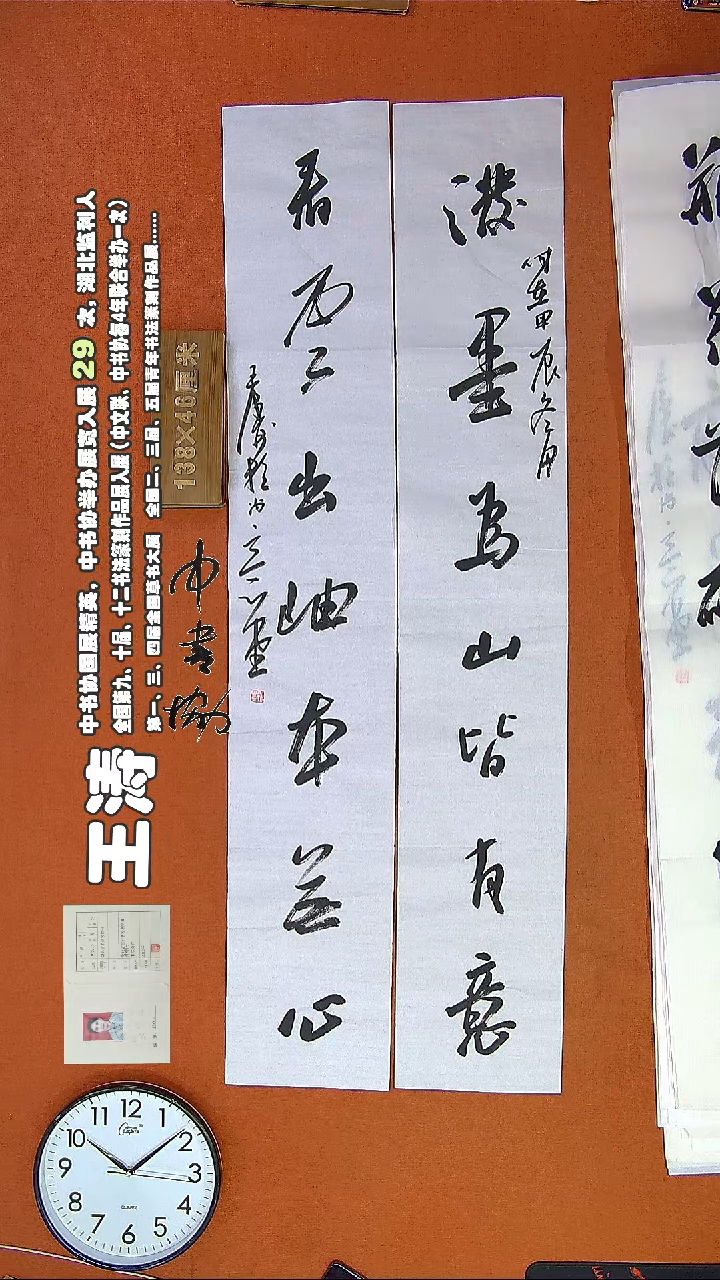 泼墨为山皆有意
时在甲辰冬月
看云出岫本无心
王涛
中书协国展精英，中书协举办展览入展 29 次，湖北监利人
全国第九、十届、十二书法篆刻作品展入展（中文联、中书协每4年联合举办一次）
第一、三、四届全国草书大展 全国二、三届、五届青年书法篆刻作品展......
138×46厘米
中书协
12
1
2
3
4
5
6
7
8
9
10
11